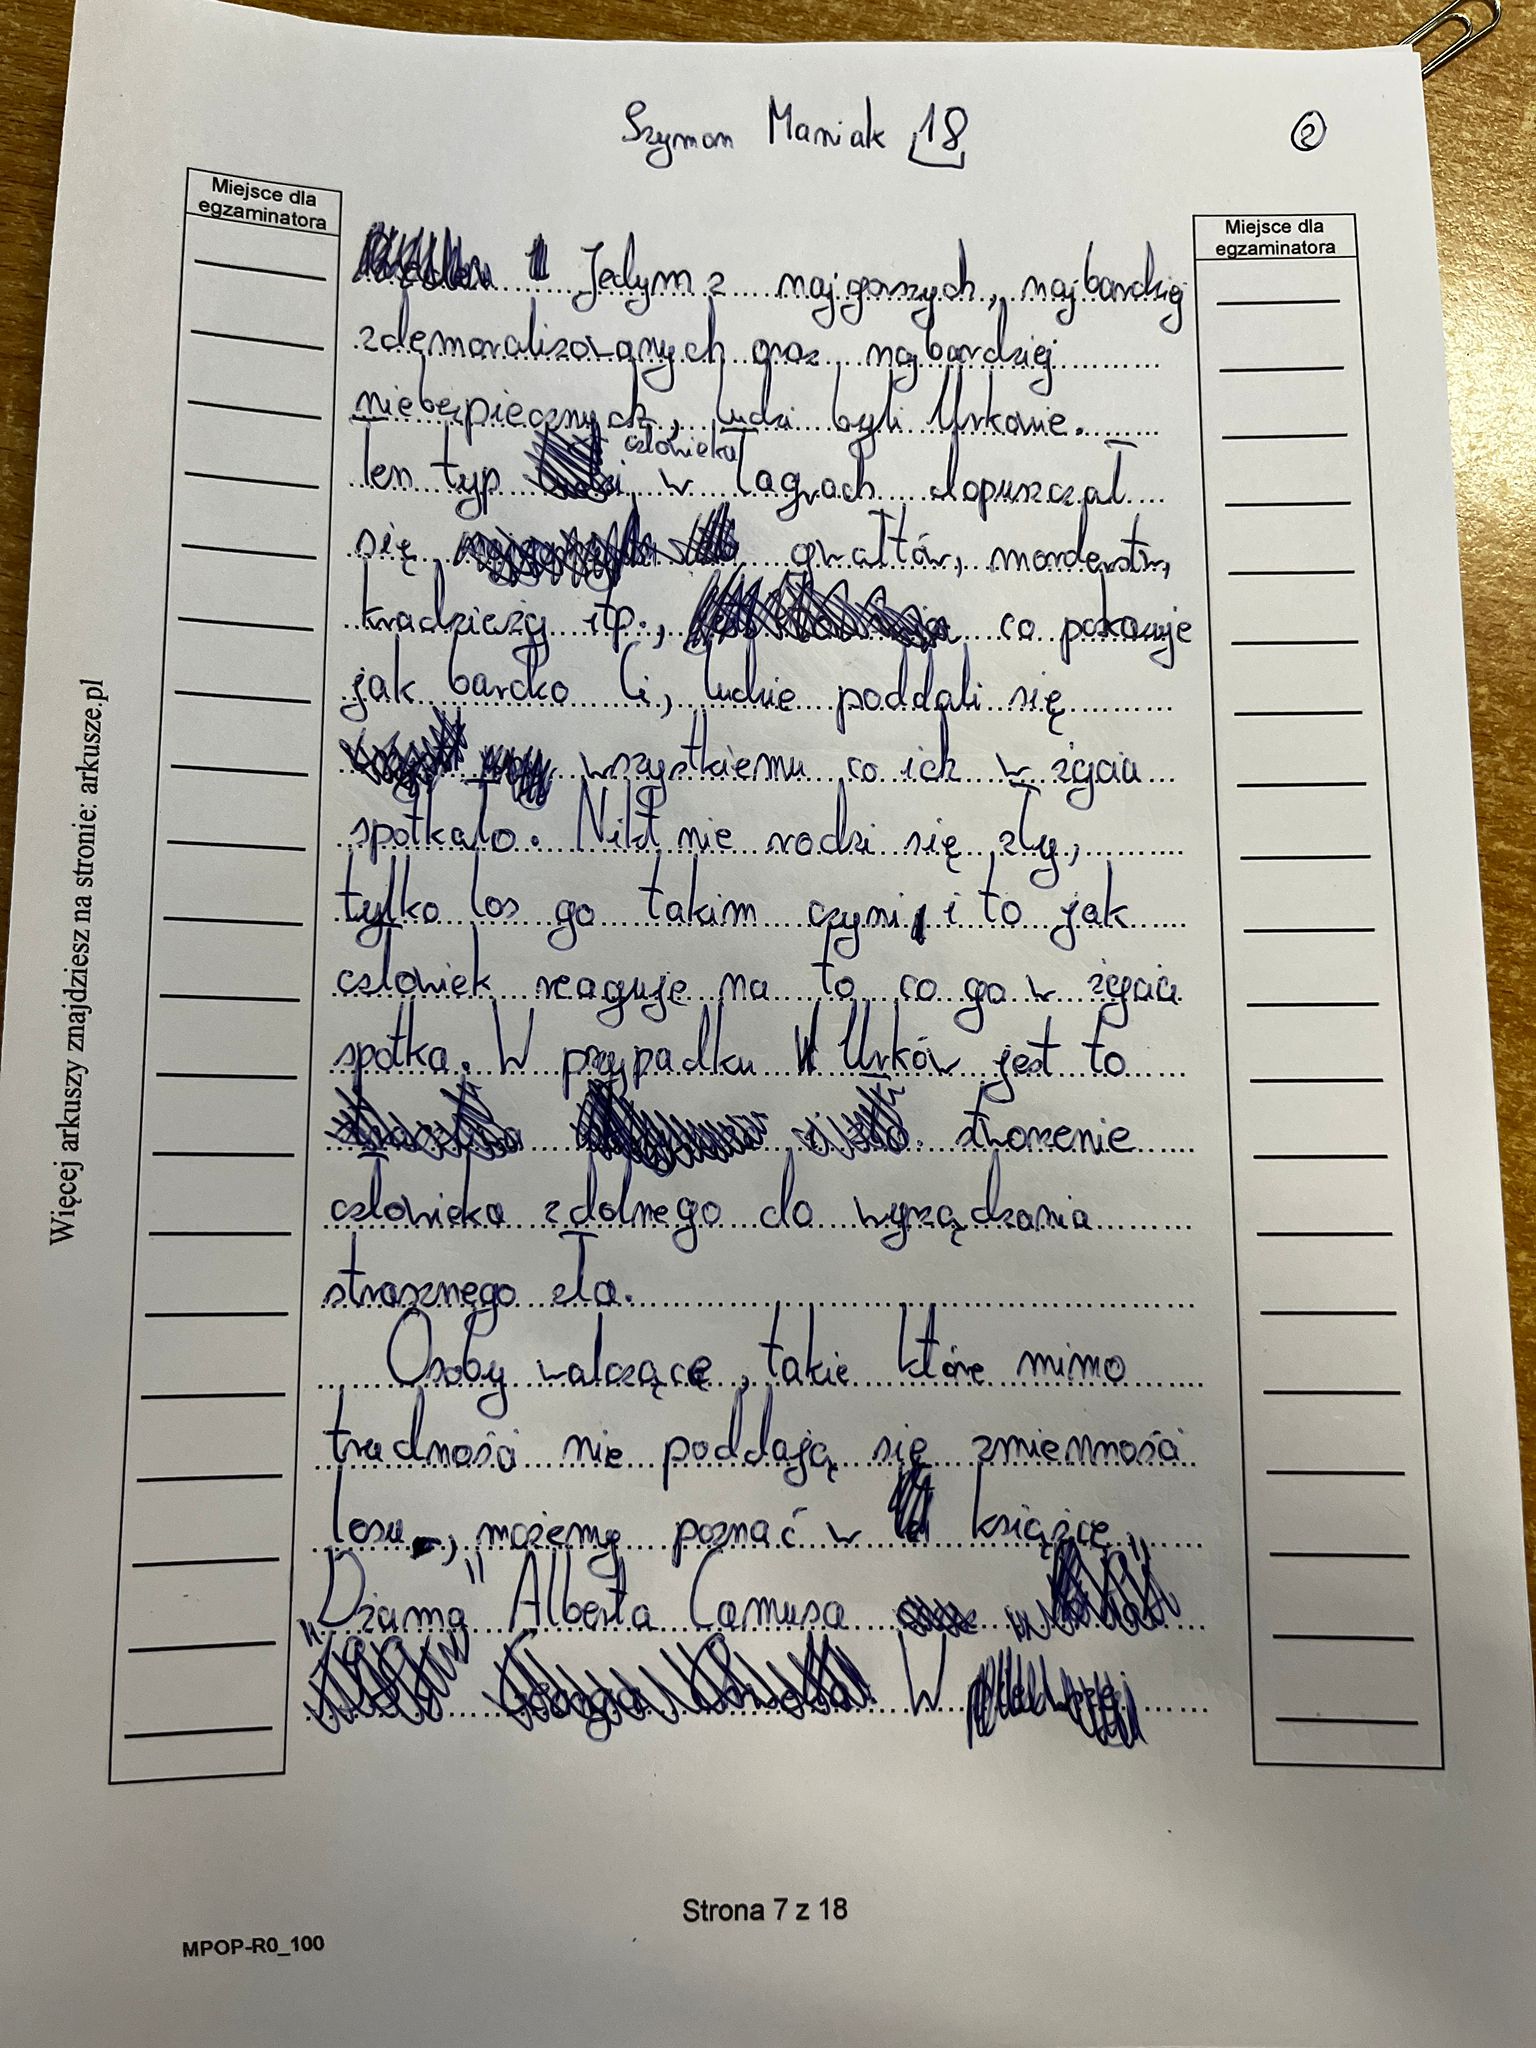 Szymon Maniak 18
2
Miejsce dla
egzaminatora
Miejsce dla
egzaminatora
Jedym z najgorszych, najbardziej
zdemoralizowanych oraz najbardziej
niebezpiecznych, ludzi byli Urkowie.
Ten typ człowieka w łagrach dopuszczał
się gwałtów, morderstw,
kradzieży itp., co pokazuje
jak bardzo Ci, ludzie poddali się
wszystkiemu co ich w życiu
spotkało. Nikt nie rodzi się zły,
tylko los go takim czyni, i to jak
człowiek reaguje na to co go w życiu
spotka. W przypadku Urków jest to
stworzenie
człowieka zdolnego do wyrządzania
strasznego zła.
Osoby walczące, takie które mimo
trudności nie poddają się zmienności
losu, możemy poznać w książce
"Dżama" Alberta Camusa
W
Więcej arkuszy znajdziesz na stronie: arkusze.pl
Strona 7 z 18
MPOP-R0_100